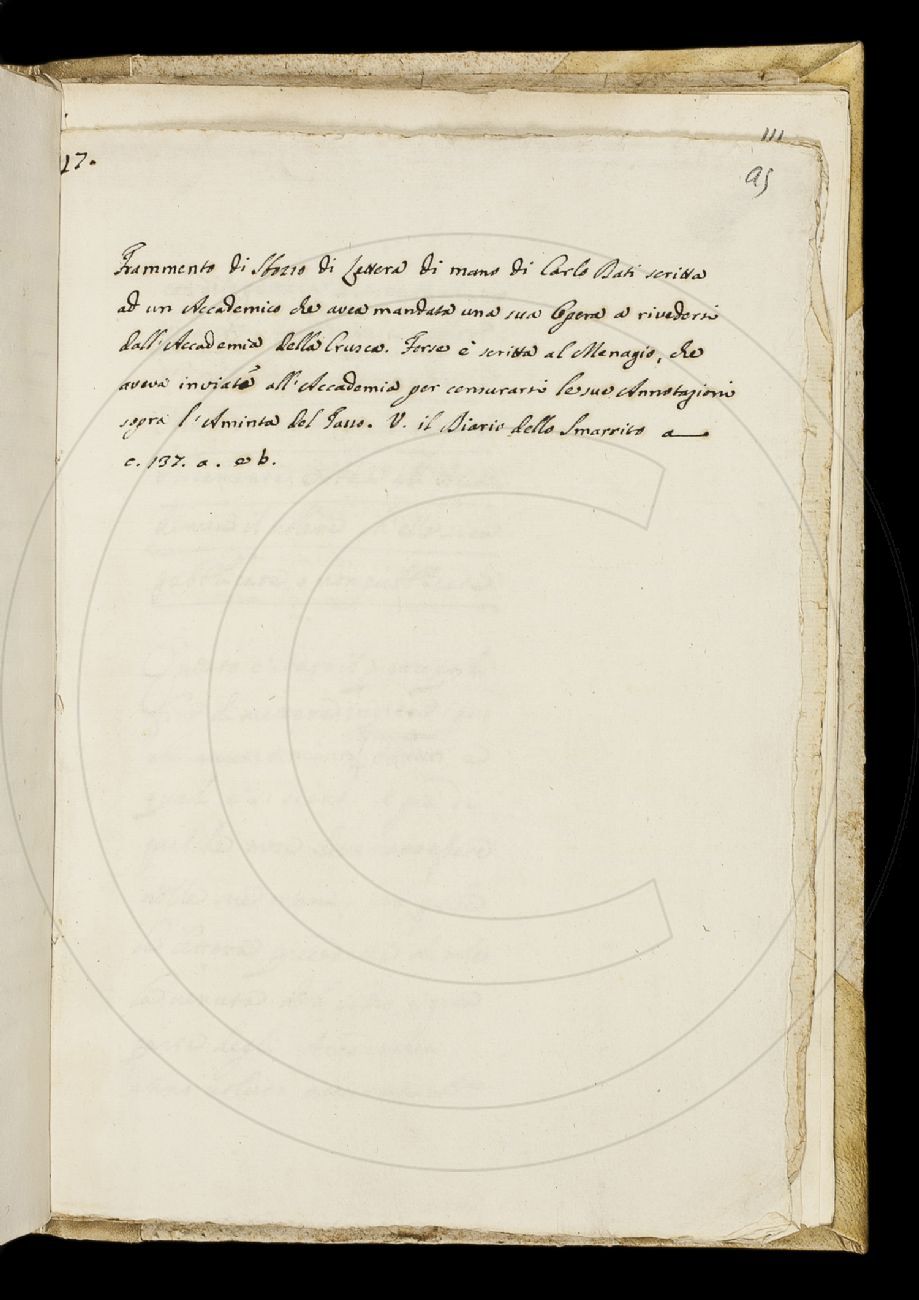 111
17.
95
Frammento di Sbozzo di Lettera di mano di Carlo Dati scritta
ad un Accademico che avea mandata una sua Opera a rivedersi
dall'Accademia della Crusca. Forse è scritta al Menagio, che
aveva inviato all'Accademia per censurarsi le sue Annotazioni
sopra l'Aminta del Tasso. V. il Diario dello Smarrito a
c. 137. a. e b.